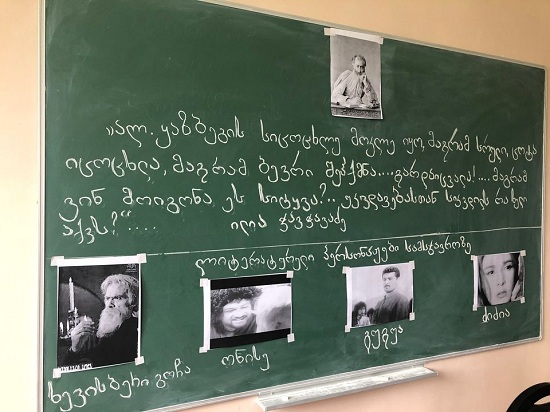 „ალ. ყაზბეგის სიცოცხლე მოკლე იყო, მაგრამ სრული, ცოტა
იცოცხლა, მაგრამ ბევრი შეჰქმნა.... გარდაიცვალა!.... მაგრამ
ვინ მოიგონა ეს სიტყვა?.. უკვდავებასთან სიკვდილს რა ხელი
აქვს?“.... ილია ჭავჭავაძე
ლიტერატურული პერსონაჟები სამსჯავროზე
ხევისბერი გოჩა
ონისე
გუგუა
ძიძია